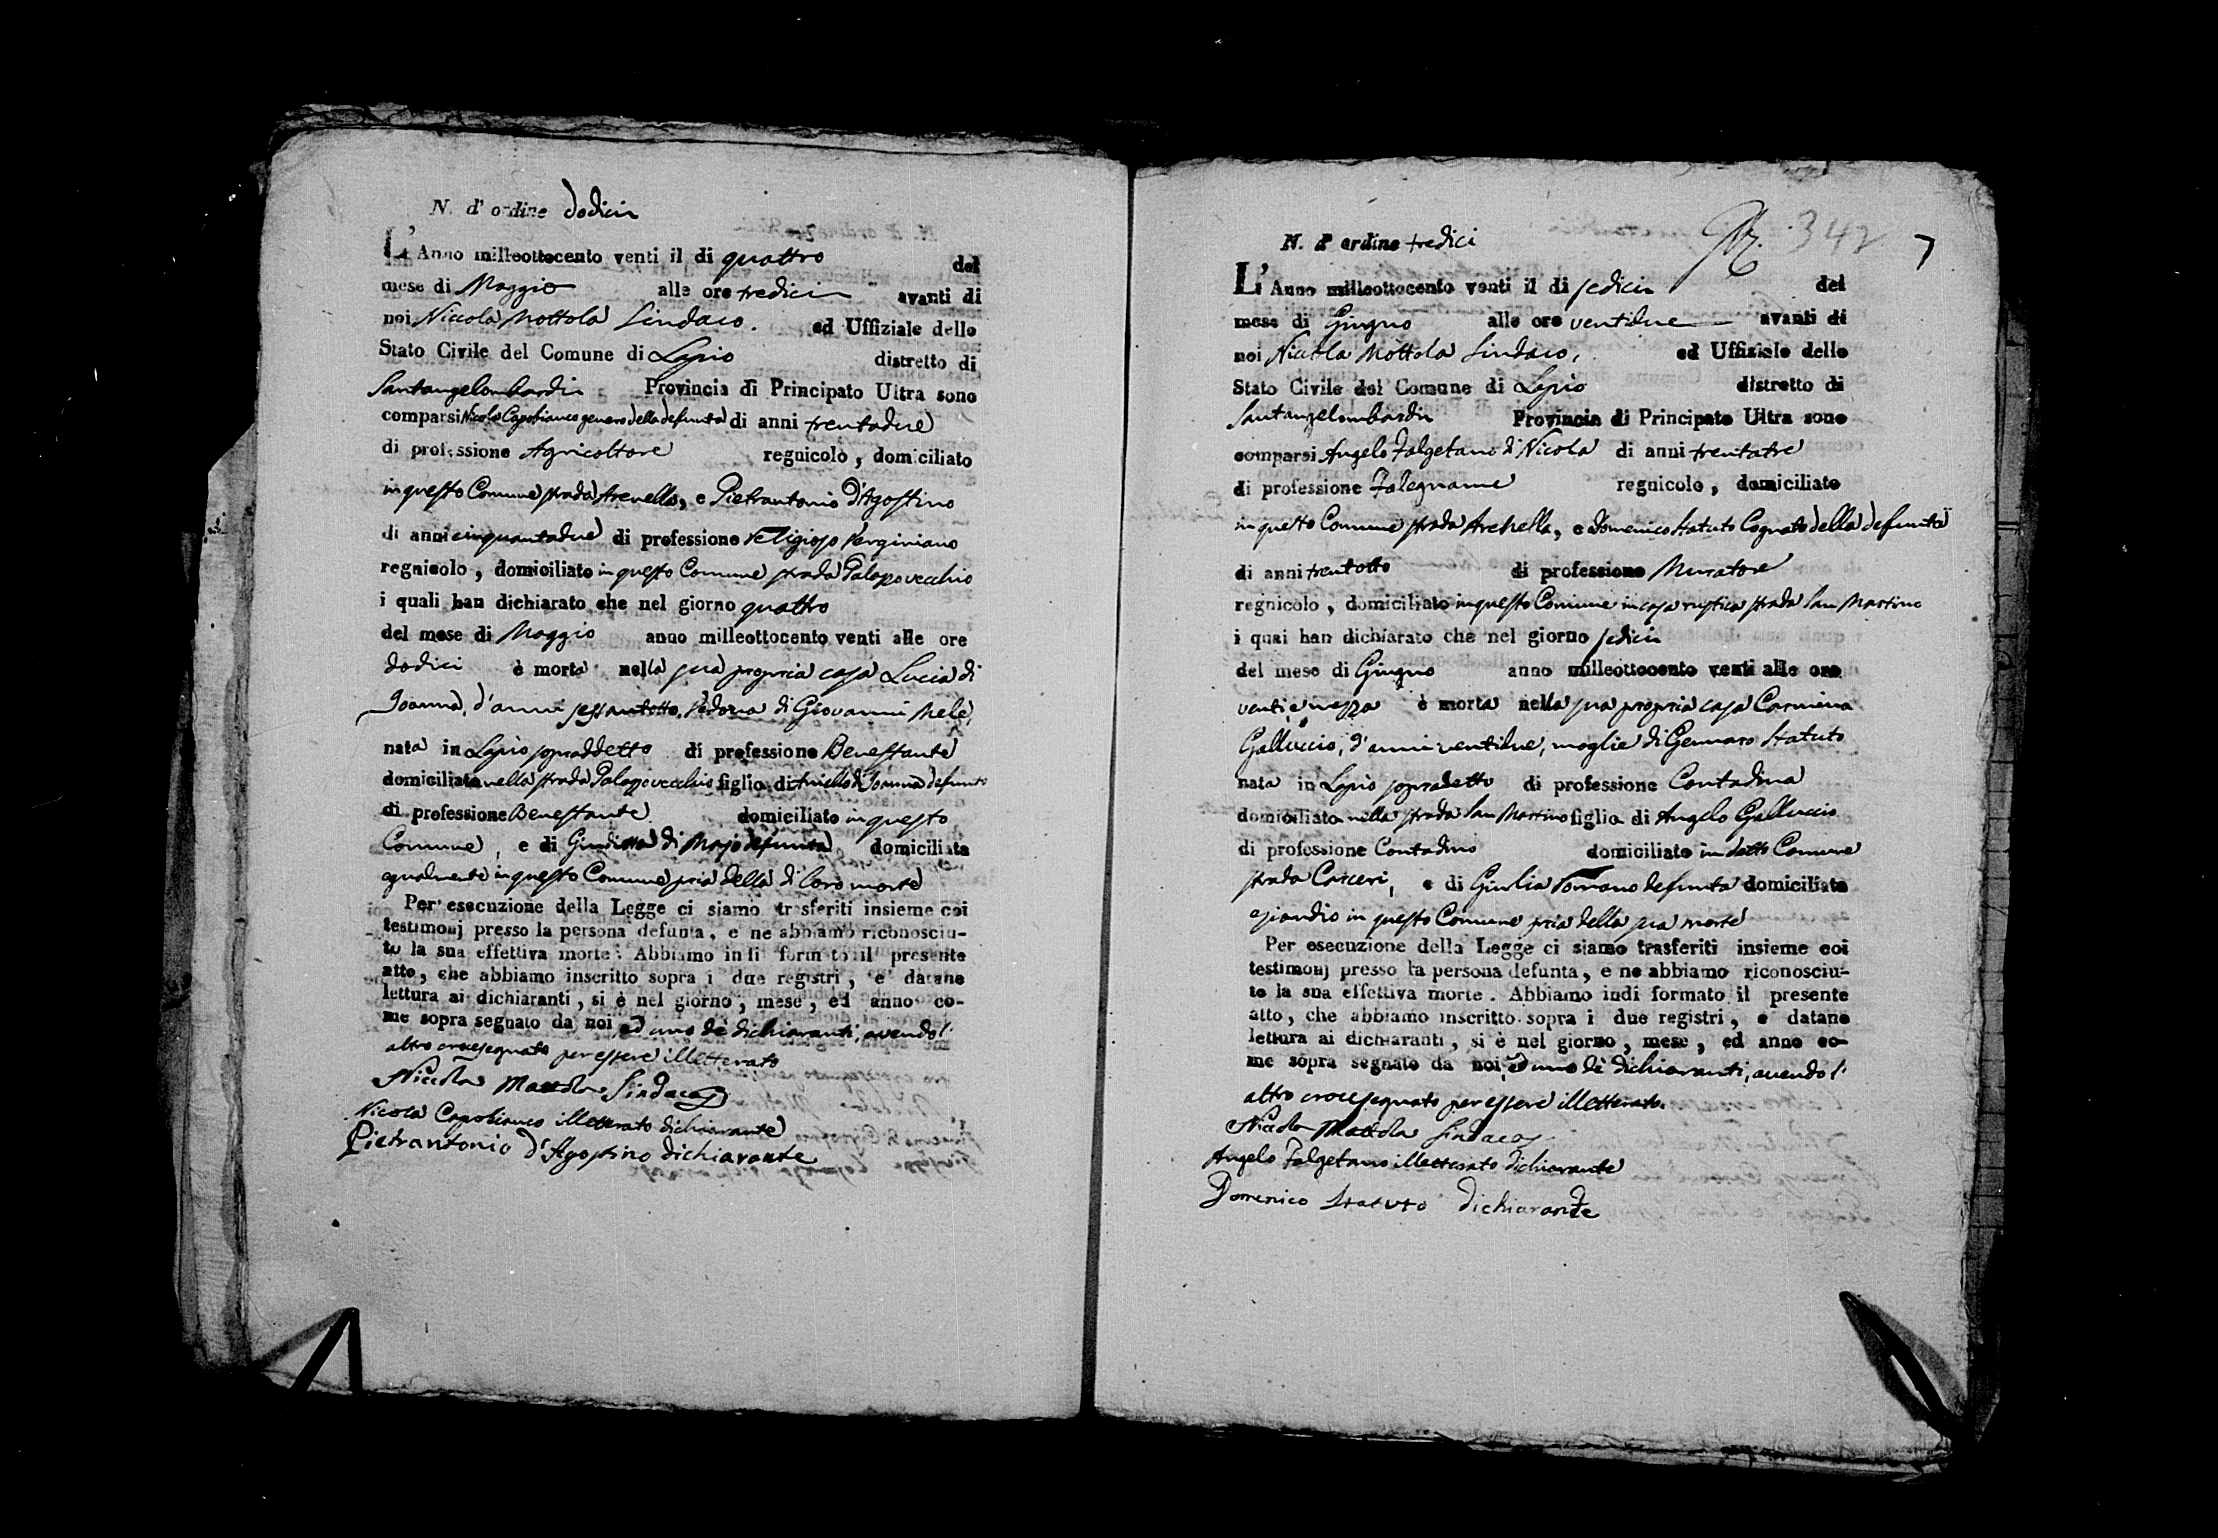 N. d' ordine dodici
L' Anno milleottocento venti il di quattro del
mese di Maggio alle ore tredici avanti di
noi Niccola Mottola Sindaco. ed Uffiziale dello
Stato Civile del Comune di Lapio distretto di
Santangelombardi Provincia di Principato Ultra sono
comparsi Nicola Capobianco genero della defunta di anni trentadue
di professione Agricoltore regnicolo, domiciliato
in questo Comune strada Arenella, e Pietrantonio d'Agostino
di anni cinquantadue di professione religioso Verginiano
regnicolo, domiciliato in questo Comune strada Palazzovecchio
i quali han dichiarato che nel giorno quattro
del mese di Maggio anno milleottocento venti alle ore
dodici è morta nella sua propria casa Lucia di
Joanna, d'anni sessantotto, Vedova di Giovanni Mele,
nata in Lapio sopraddetto di professione Benestante
domiciliata nella strada Palazzovecchio figlia di Aniello di Joanna defunto
di professione Benestante domiciliato in questo
Comune, e di Giuditta di Majo defunta domiciliata
egualmente in questo Comune pria della di loro morte
Per esecuzione della Legge ci siamo trasferiti insieme coi
testimonj presso la persona defunta, e ne abbiamo riconosciu-
to la sua effettiva morte. Abbiamo indi formato il presente
atto, che abbiamo inscritto sopra i due registri, e datane
lettura ai dichiaranti, si è nel giorno, mese, ed anno co-
me sopra segnato da noi ed uno dè dichiaranti, avendo l'
altro crocesegnato per essere illetterato
Niccola Mottola Sindaco
Nicola Capobianco illetterato dichiarante
Pietrantonio d'Agostino dichiarante
342 7
N. d' ordine tredici
L' Anno milleottocento venti il di sedici del
mese di Giugno alle ore ventidue avanti di
noi Nicola Mottola Sindaco, ed Uffiziale dello
Stato Civile del Comune di Lapio distretto di
Santangelombardi Provincia di Principato Ultra sono
comparsi Angelo Falgetano di Nicola di anni trentatre
di professione Falegname regnicolo, domiciliato
in questo Comune strada Arenella, e Domenico Statuto Cognato della defunta
di anni trentotto di professione Muratore
regnicolo, domiciliato in questo Comune in casa rustica strada San Martino
i quai han dichiarato che nel giorno sedici
del mese di Giugno anno milleottocento venti alle ore
venti e mezza è morta nella sua propria casa Carmina
Galluccio, d'anni ventidue, moglie di Gennaro Statuto
nata in Lapio sopradetto di professione Contadina
domiciliata nella strada San Martino figlia di Angelo Galluccio
di professione Contadino domiciliato in detto Comune
strada Carceri, e di Giulia Romano defunta domiciliata
eziandio in questo Comune pria della sua morte
Per esecuzione della Legge ci siamo trasferiti insieme coi
testimonj presso la persona defunta, e ne abbiamo riconosciu-
to la sua effettiva morte. Abbiamo indi formato il presente
atto, che abbiamo inscritto sopra i due registri, e datane
lettura ai dichiaranti, si è nel giorno, mese, ed anno co-
me sopra segnato da noi, ed uno dè dichiaranti, avendo l'
altro crocesegnato per essere illetterato.
Niccola Mottola Sindaco
Angelo Falgetano illetterato dichiarante
Domenico Statuto dichiarante